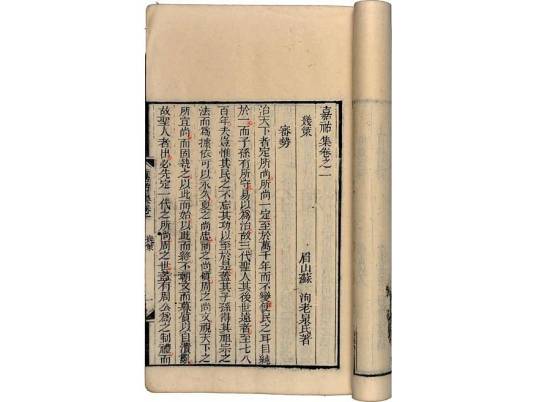 嘉祐集卷之一
眉山蘇 洵老泉氏著
幾策
審勢
治天下者定所尚所尚一定至於萬千年而不變使民之耳目純
於一而子孫有所守易以為治故三代聖人其後世遠者至七八
百年夫豈惟其民之不忘其功以至於是蓋其子孫得其祖宗之
法而為據依可以永久夏之尚忠商之尚質周之尚文視天下之
所宜尚而固執之以此而始以此而終不朝文而暮質以自潰亂
故聖人者出必先定一代之所尚周之世蓋有周公為之制禮而
幾策